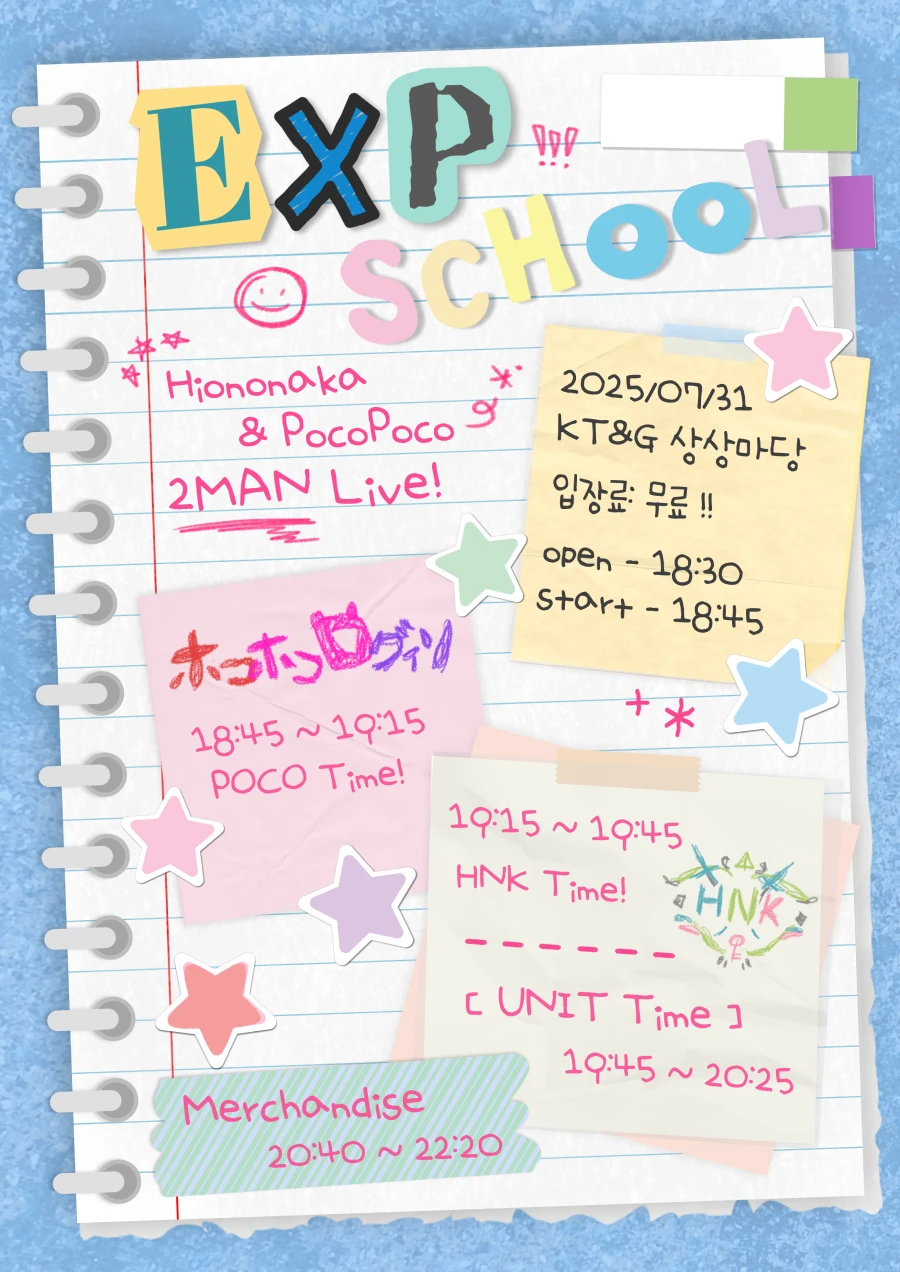 EXP
!!!
SCHOOL
Hiononaka
& PocoPoco
2MAN Live!
2025/07/31
KT&G 상상마당
입장료: 무료 !!
open - 18:30
start - 18:45
18:45 ~ 19:15
POCO Time!
19:15 ~ 19:45
HNK Time!
HNK
[ UNIT Time ]
19:45 ~ 20:25
Merchandise
20:40 ~ 22:20